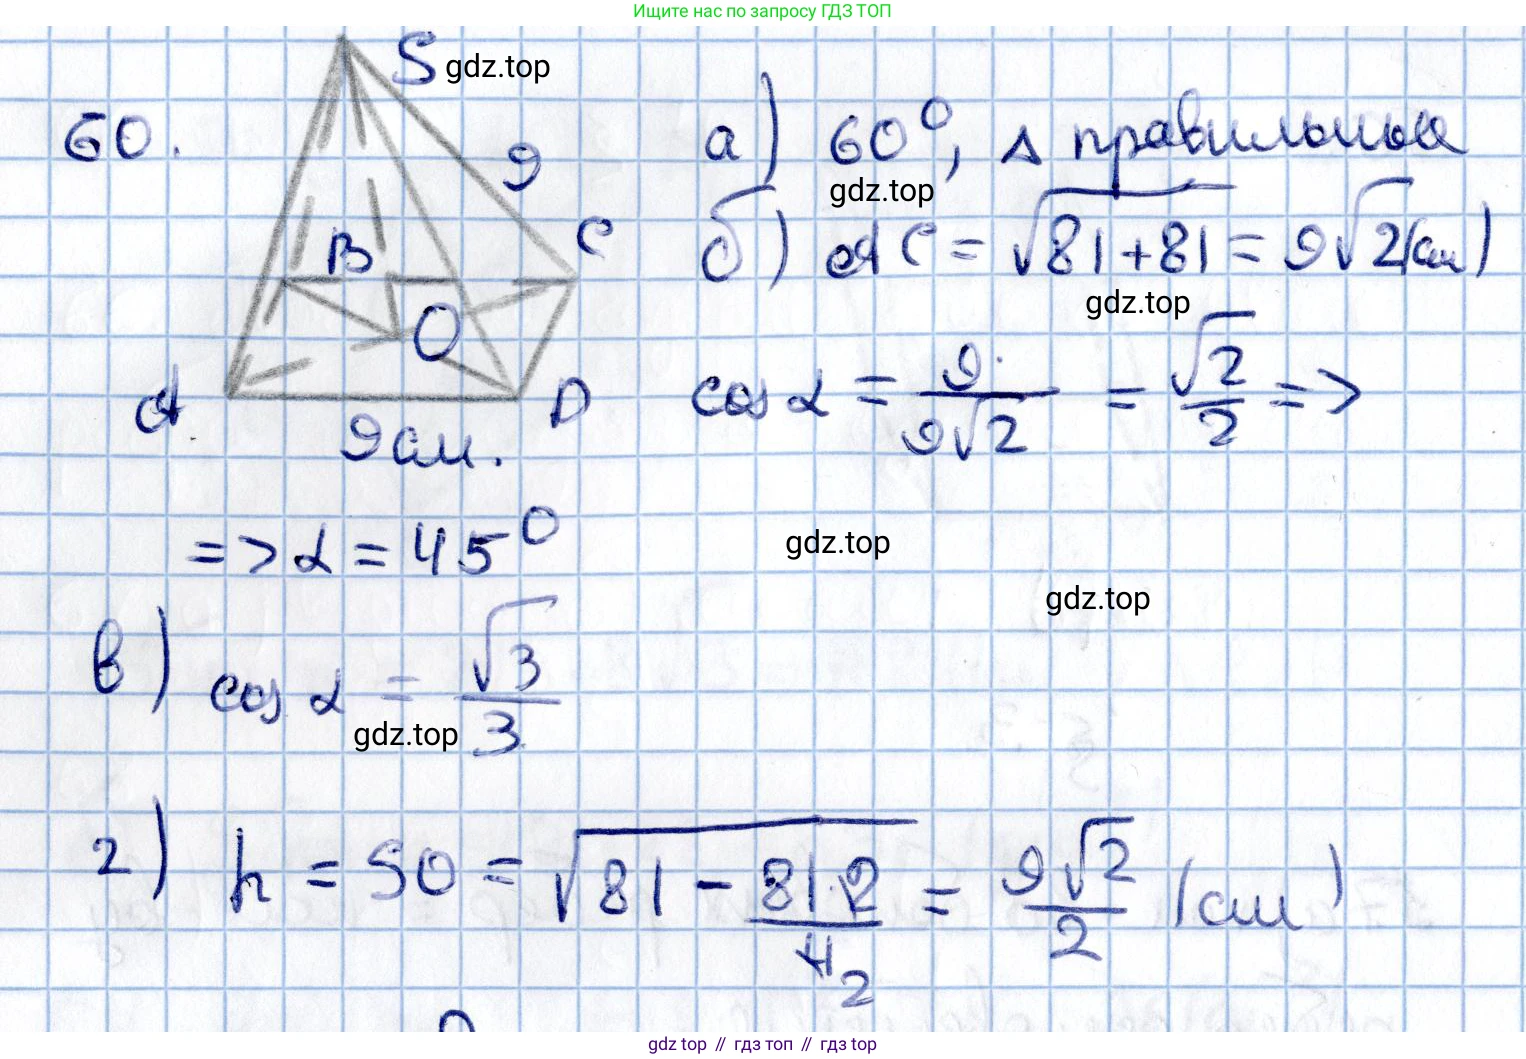 Ищите нас по запросу ГДЗ ТОП
60.
S
gdz.top
9
B
C
O
A
D
9 см.
а) 60°, Δ правильные
gdz.top
б) AC = √81+81 = 9√2 (см)
gdz.top
cos α = 9/9√2 = √2/2 =>
=> α = 45°
gdz.top
gdz.top
в) cos α = √3/3
gdz.top
г) h = SO = √81 - 81·2/4 2 = 9√2/2 (см)
gdz.top // гдз топ // гдз top